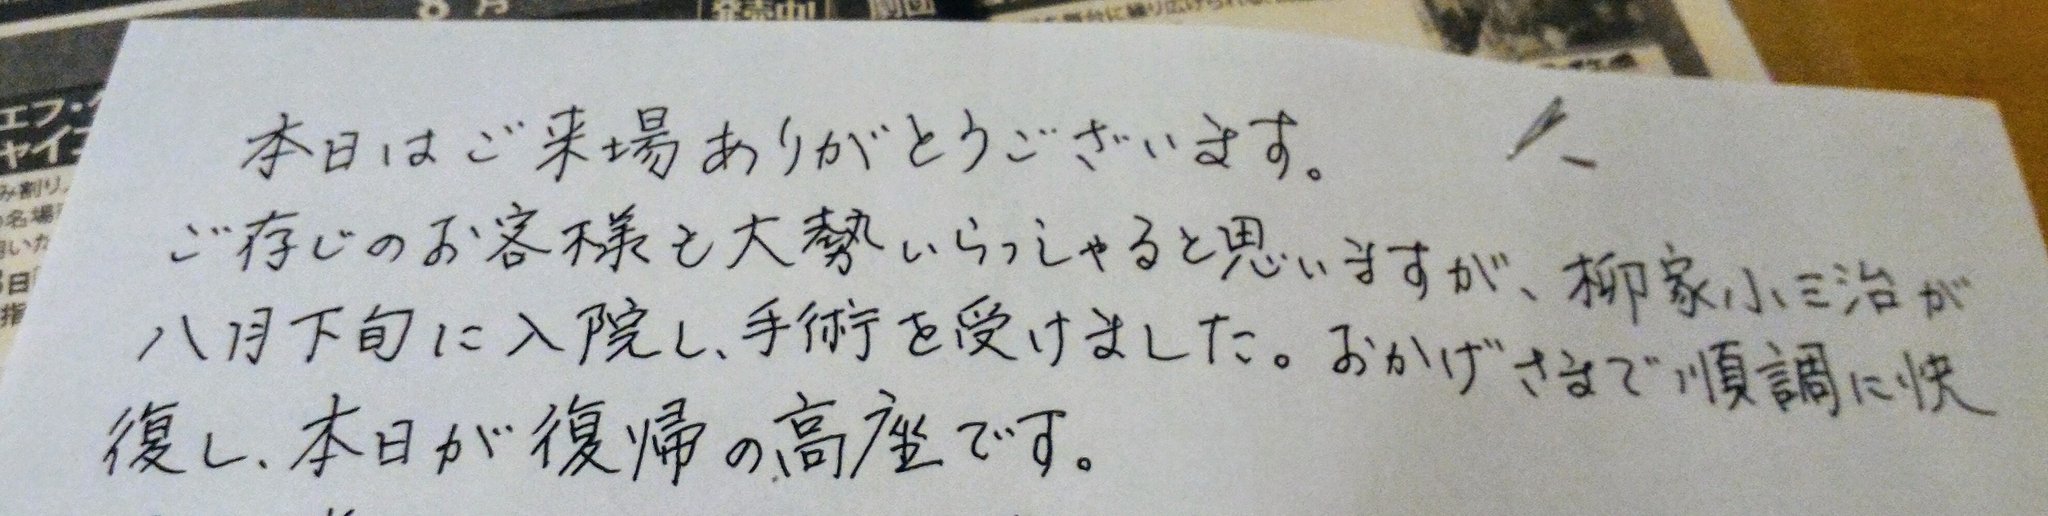 8月
発売中!
劇団
舞台に繰り広げられる
エフ・
ャイ
み割り
名場
日
指
本日はご来場ありがとうございます。
ご存じのお客様も大勢いらっしゃると思いますが、柳家小三治が
八月下旬に入院し、手術を受けました。おかげさまで順調に快
復し、本日が復帰の高座です。